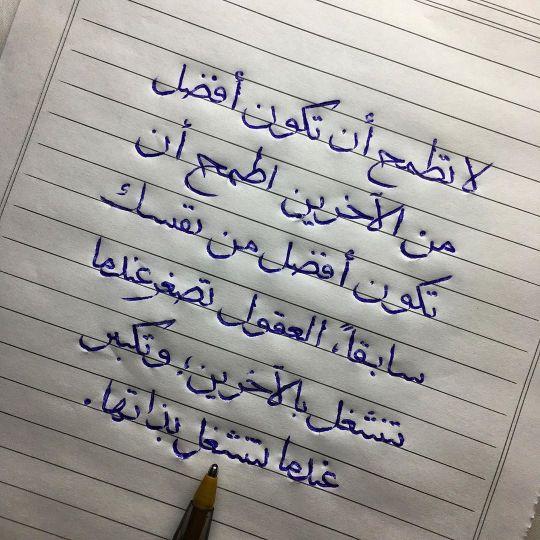 لا تطمح أن تكون أفضل
من الآخرين اطمح أن
تكون أفضل من نفسك
سابقاً، العقول تصغر عندما
تنشغل بالآخرين؛ وتكبر
عندما تنشغل بذاتها.